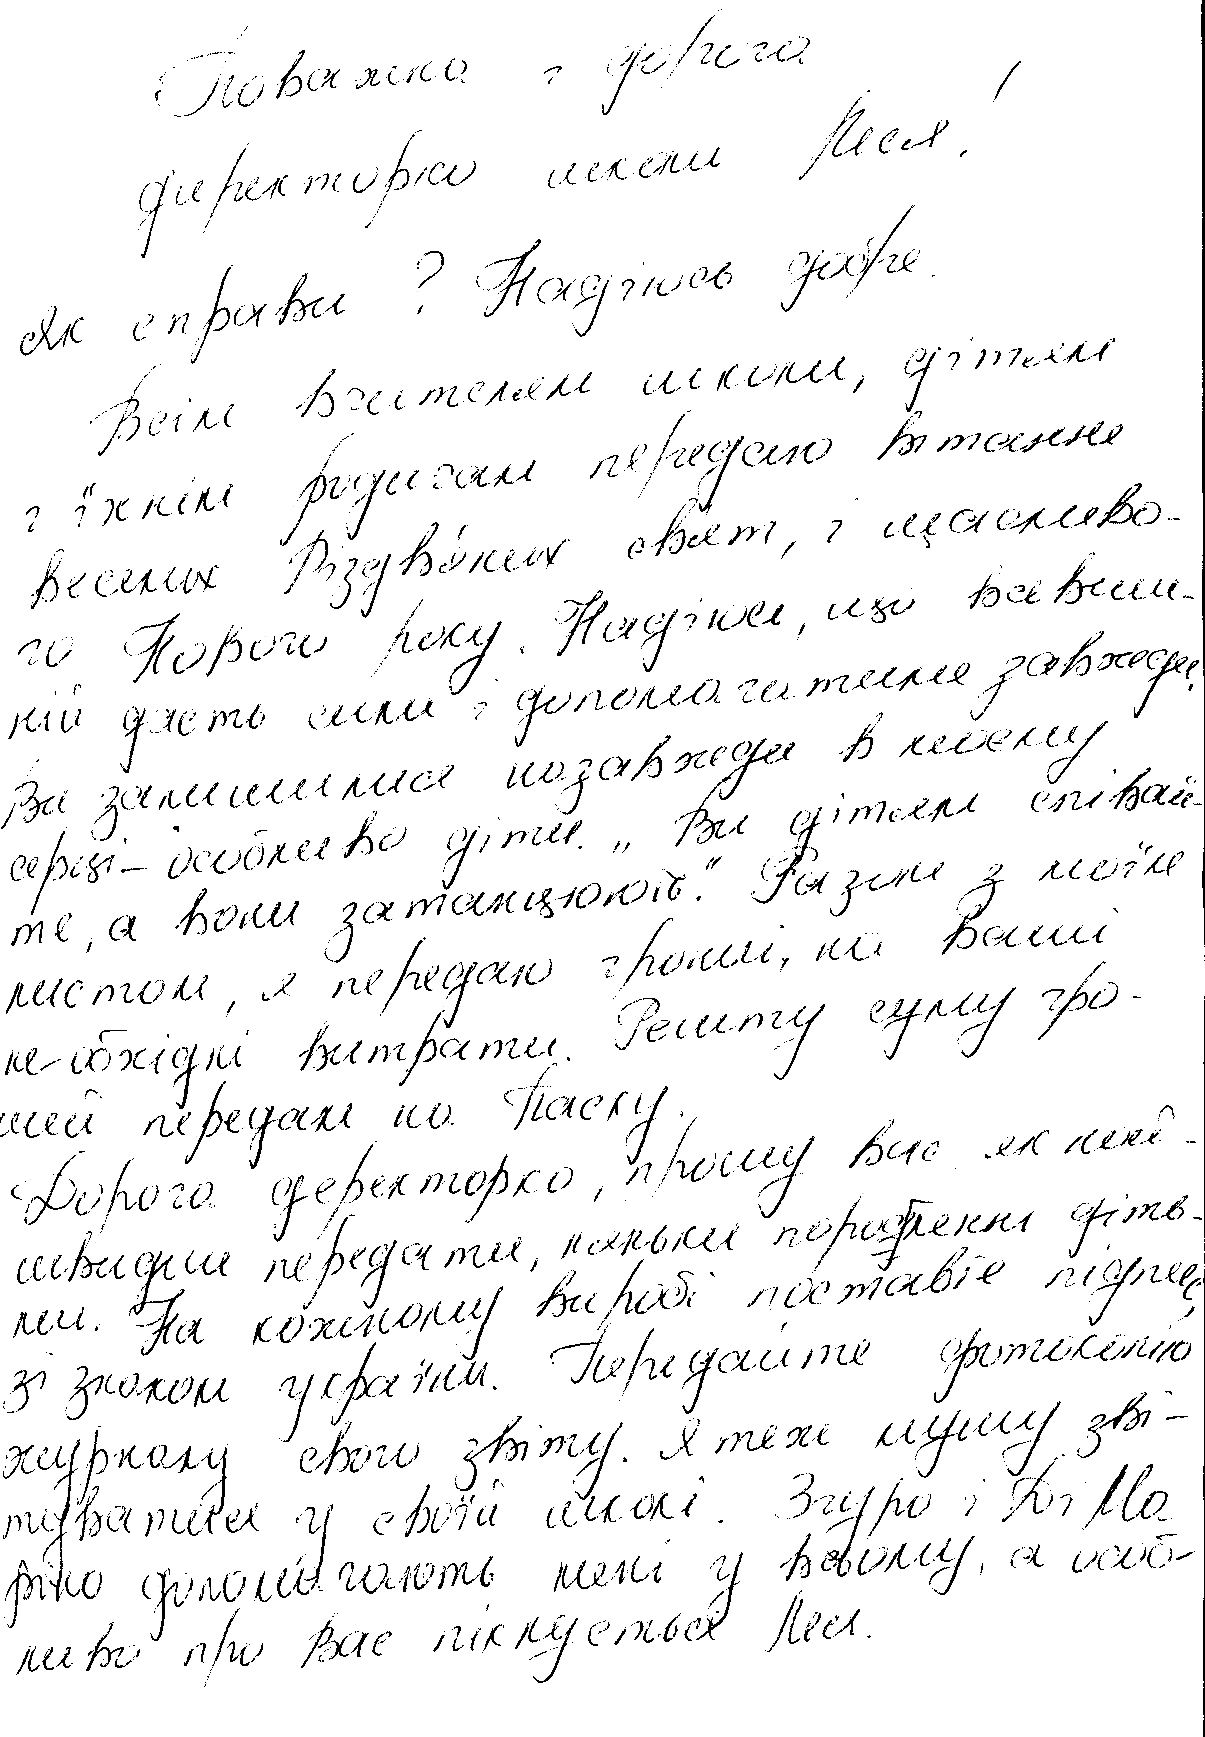 Поважна і дорога
директорко школи Леся!
Як справи? Надіюсь добре.
Всім вчителям школи, дітям
і їхнім родичам передаю вітання
веселих Різдв'яних свят, і щасливо-
го Нового року. Надіюся, що Вавиш-
ній дасть сили і допомагатиме завжди.
Ви залишилися назавжди в моєму
серці – особливо діти. „Ви дітям співай-
те, а вони затанцюють." Разом з моїм
листом, я передаю гроші, на ваші
необхідні витрати. Решту суму гро-
шей передам на Паску.
Дорога деректорко, прошу вас як най-
швидше передати, ляльки пороблені діть-
ми. На кожному виробі поставте підпис,
зі знаком україни. Передайте фотокопію
журналу свого звіту. Я теж мушу зві-
туватися у своїй школі. Згуро і Ді Ма
ріно допомагають мені у всьому, а особ-
ливо про Вас піклується Леся.